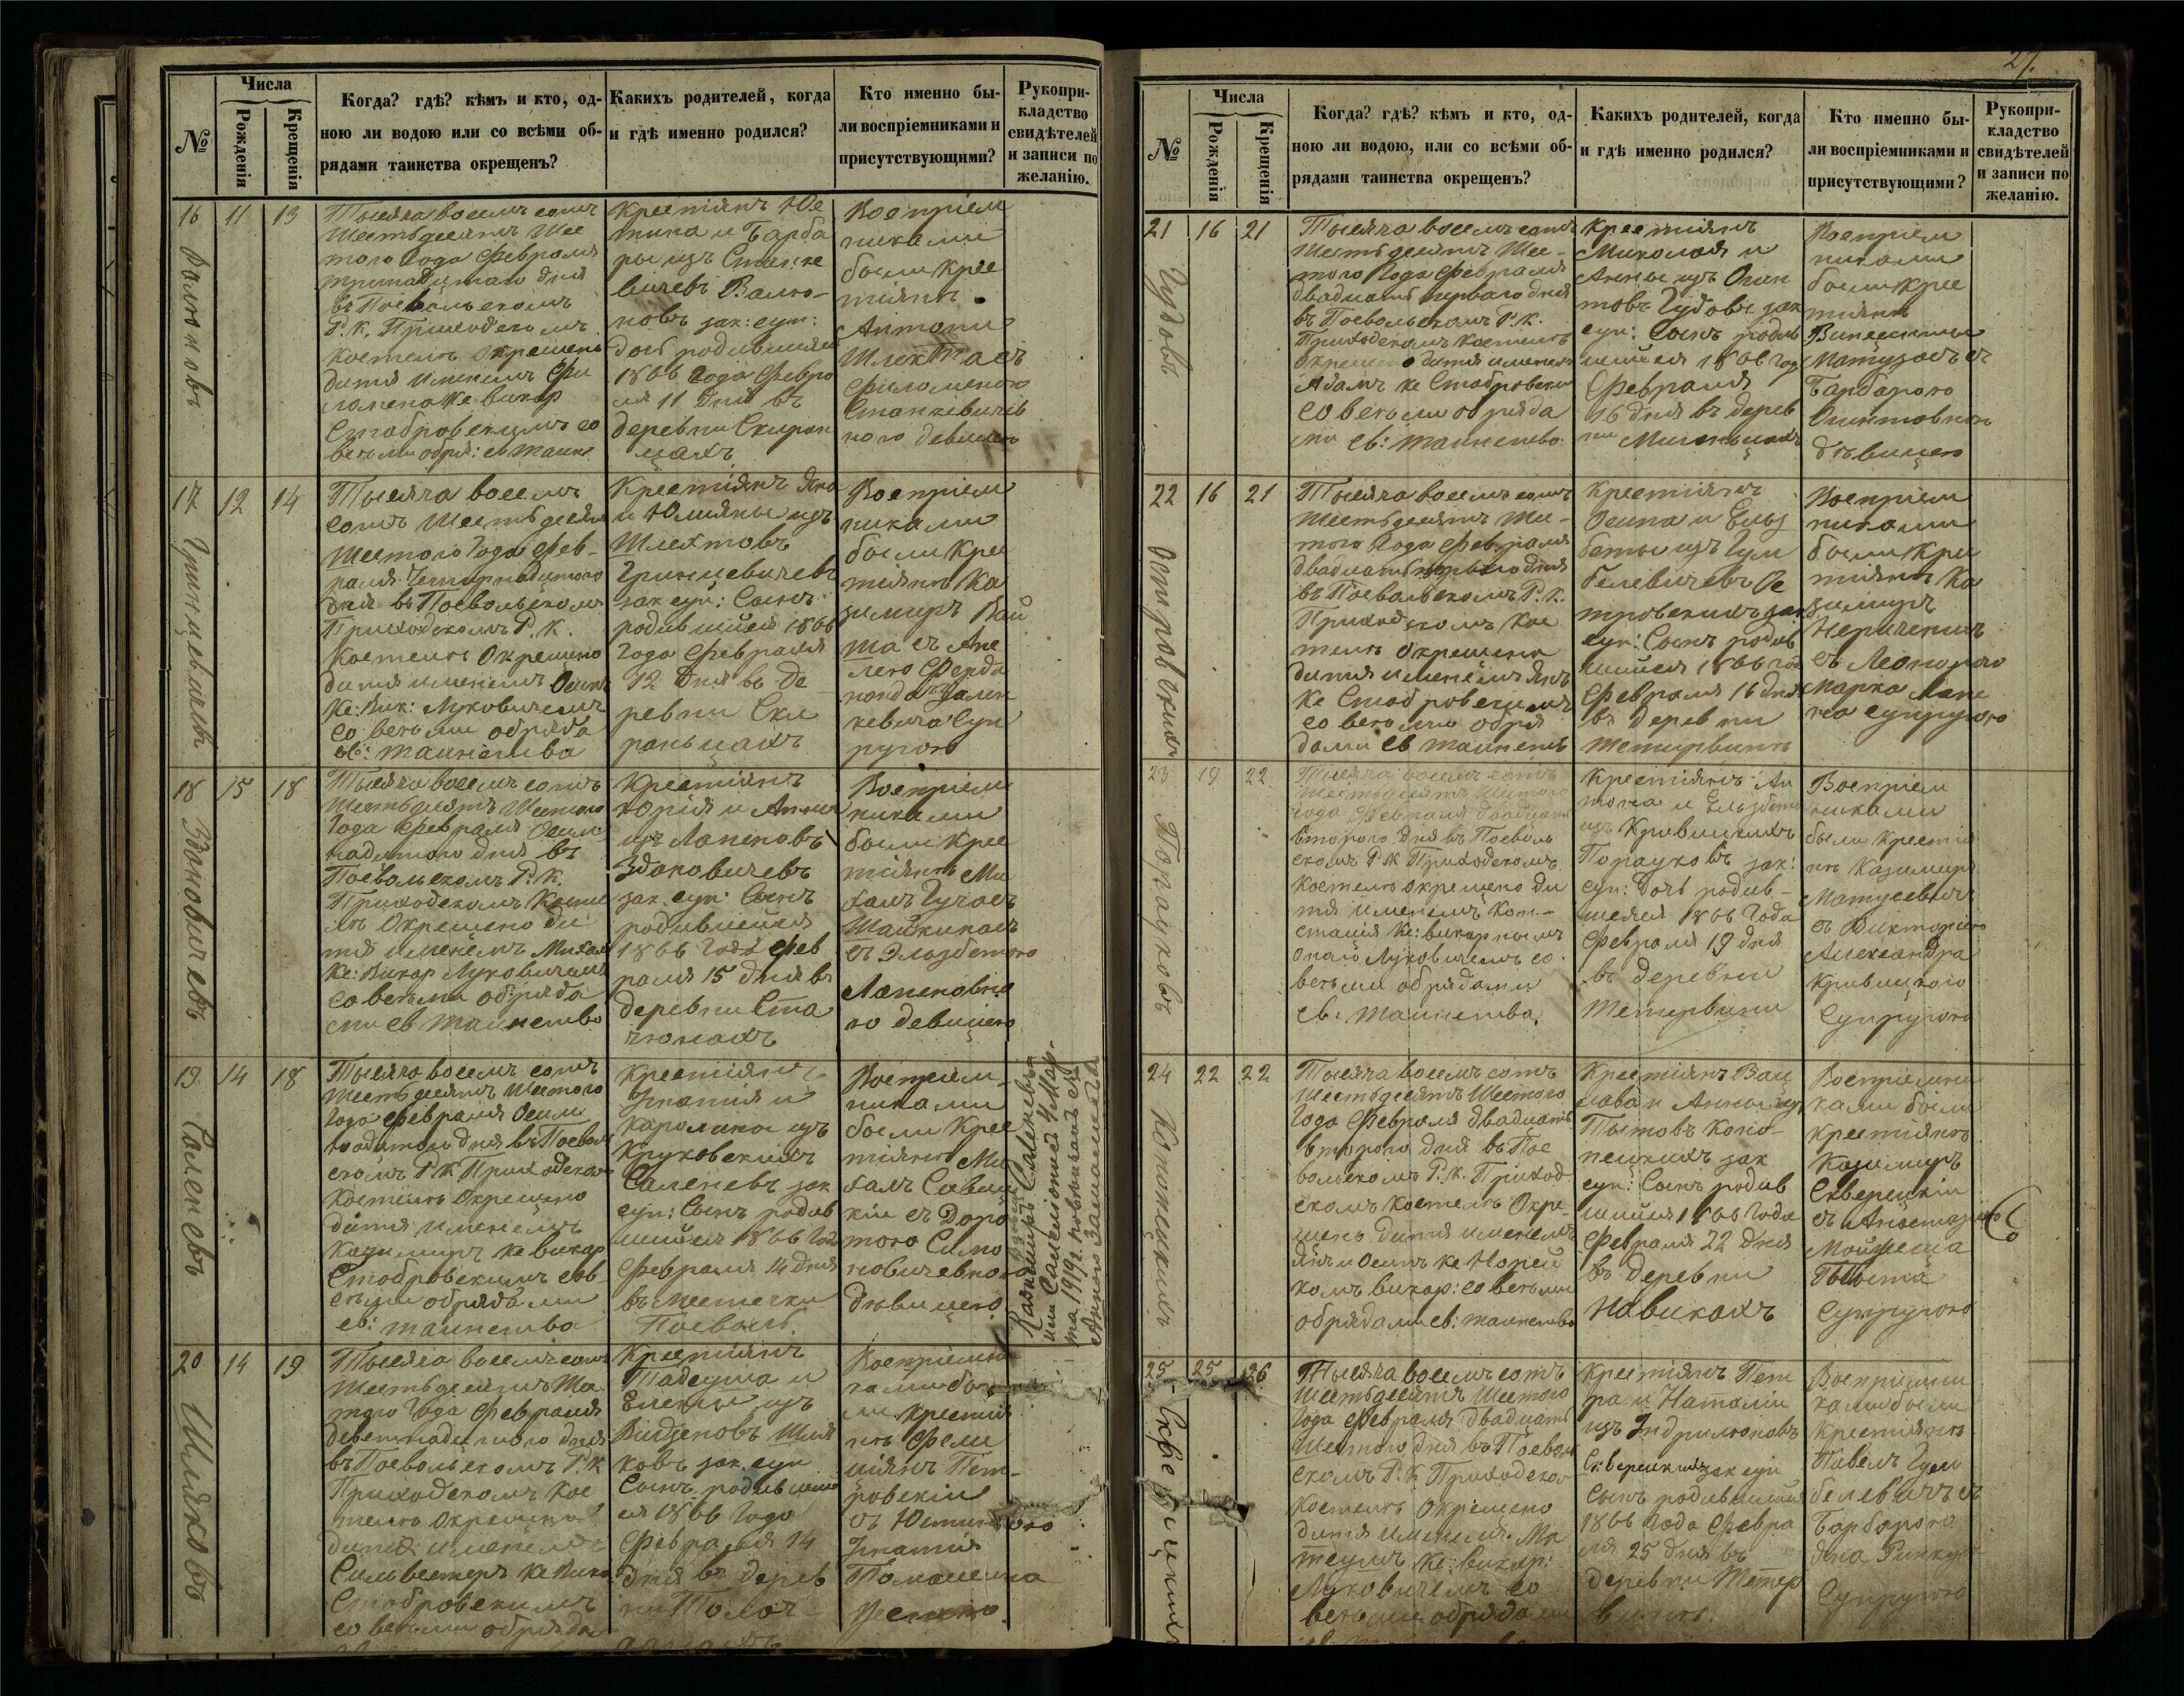 №
Числа
Рожденія
Крещенія
Когда? гдѣ? кѣмъ и кто, од-
ною ли водою или со всѣми об-
рядами таинства окрещенъ?
Какихъ родителей, когда
и гдѣ именно родился?
Кто именно бы-
ли воспріемниками и
присутствующими?
Рукопри-
кладство
свидѣтелей
и записи по
желанію.
16
11
13
Тысяча восемь сотъ
Шестьдесятъ Шес
того Года Февраля
тринадцатаго дня
въ Поевольскомъ
Р. К. Приходскомъ
Костелѣ Окрещено
дитя именемъ Фи
ломена Кс викар
Стабровскимъ со
всѣми обря: св таин
Крестіянъ
и Барба
ры изъ Станке
вичевъ Валю-
новъ зак: суп:
дочь родившаяся
1866 Года Февра
ля 11 дня въ
деревни Скиран
цахъ
Воспріем
никами
были Крес
тіянѣ
Антони
съ
Филоменою
Станкевичев
ною девицею
17
Гринцевичевъ
12
14
Тысяча восемь
сотъ Шестьдесятъ
Шестого Года Фев-
раля Четырнадцатого
дня въ Поевольскомъ
Приходскомъ Р. К.
Костелѣ Окрещено
дитя именемъ Осипъ
Кс: Вик: Луковичемъ
со всѣми обряда
св: таинства
Крестіянъ Яна
и Юліяны изъ
Шлектовъ
Гринцевичевъ
зак суп: Сынъ
родившийся 1866
Года Февраля
12 дня въ де
ревни Ски
ранцахъ
Воспріем
никами
были Крес
тіянѣ Ка
зимиръ
съ Ане
лею Ферди
нанда Зален
кевича Суп
ругою
18
Здановичевъ
15
18
Тысяча восемь сотъ
Шестьдесятъ Шестого
Года Февраля Осьм
надцатого дня въ
Поевольскомъ Р. К.
Приходскомъ Косте
лѣ Окрещено ди
тя именемъ Михалъ
Кс: Викар Луковичемъ
со всѣми обряда
ми св таинства
Крестіянъ
Юрія и Анны
изъ Лапеновъ
Здановичевъ
зак. суп: Сынъ
родившийся
1866 Года Фев
раля 15 дня въ
деревни Ста
чюнахъ
Воспріем
никами
были Крес
тіянѣ Ми
халъ
съ Эльзбетою
Лапеновне
ю девицею
19
Саленевъ
14
18
Тысяча восемь сотъ
Шестьдесятъ Шестого
Года Февраля Осьм
надцатого дня въ Поеволь
скомъ Р К Приходскомъ
Костелѣ Окрещено
дитя именемъ
Казимиръ Кс викар
Стабровскимъ совсѣ-
ми обрядами
св: таинства
Крестіянъ
Игнатія и
Каролины изъ
Круковскихъ
Саленевъ зак
суп: Сынъ родив
шийся 1866 Года
Февраля 14 дня
въ местечки
Поеволь.
Воспріем-
никами
были Крес
тіянѣ Ми
халъ Савиц
кій съ Доро
тою Симо
новичевною
девицею
Казимиръ Саленевъ
или Саленіонисъ Мар-
та 1919 г. повѣнчанъ съ
Анною
20
Шляковъ
14
19
Тысяча восемь сотъ
Шестьдесятъ Шес
того Года Февраля
девятнадцатого дня
въ Поевольскомъ Р. К
Приходскомъ Кос
телѣ Окрещено
дитя именемъ
Сильвестеръ Кс Вика
Стабровскимъ
со всѣми обряда
Крестіянъ
Тадеуша и
Елены изъ
Видзеновъ Шля
ковъ зак. суп
Сынъ родивший
ся 1866 Года
Февраля 14
дня въ дерев
ни
Воспріемни
ками бы
ли Крестія
нѣ Фели
ціянъ Пет-
ровскій
съ Юстиною
Игнатія
27.
№
Числа
Рожденія
Крещенія
Когда? гдѣ? кѣмъ и кто, од-
ною ли водою, или со всѣми об-
рядами таинства окрещенъ?
Какихъ родителей, когда
и гдѣ именно родился?
Кто именно бы-
ли воспріемниками и
присутствующими?
Рукопри-
кладство
свидѣтелей
и записи по
желанію.
21
Гудовъ
16
21
Тысяча восемь сотъ
Шестьдесятъ Шес-
того Года Февраля
двадцать перваго дня
въ Поевольскомъ Р. К.
Приходскомъ Костелѣ
Окрещено дитя именемъ
Адамъ Кс Стабровским
со всѣми обряда
ми св: таинства:
Крестіянъ
Миколая и
Анны изъ Опин
товъ Гудовъ зак
суп: Сынъ родив
шийся 1866 Года
Февраля
16 дня въ дерев
ни
Воспріем
никами
были Крес
тіянѣ
съ
Барбарою
Опинтовною
дѣвицею
22
Петровскихъ
16
21
Тысяча восемь сотъ
Шестьдесятъ Шес-
того Года Февраля
двадцать перваго дня
въ Поевольскомъ Р. К.
Приходскомъ Кос
телѣ Окрещено
дитя именемъ Янъ
Кс Стабровскимъ
со всѣми обря
дами св таинств
Крестіянъ
Осипа и Ельз
беты изъ Гум
белевичевъ Пе
тровскихъ зак
суп: Сынъ родив
шийся 1866 год
Февраля 16 дня
въ деревни
Тетирвинѣ
Воспріем
никами
были Крес
тіянѣ Ка
зимиръ
съ Леонорою
Марка
супругою
23
Порауковъ
19
22
Тысяча восемь сотъ
Шестьдесятъ Шестого
Года Февраля двадцать
второго дня въ Поеволь
скомъ Р К Приходскомъ
Костелѣ окрещено ди
тя именемъ Кон-
станція Кс: викарнымъ
Луковичемъ со
всѣми обрядами
св: таинства,
Крестіянъ Ан
тона и Ельзбеты
изъ Кривицкихъ
Порауковъ зак:
суп: Дочь родив-
шаяся 1866 Года
Февраля 19 дня
въ деревни
Тетервини
Воспріем
никами
были Крестія
нѣ Казимиръ
Матусевичъ
съ Викторіею
Александра
Кривицкого
Супругою
24
Конопецкихъ
22
22
Тысяча восемь сотъ
Шестьдесятъ Шестого
Года Февраля двадцать
второго дня въ Пое
вольскомъ Р. К. Приход
скомъ Костелѣ Окре
щено дитя именемъ
Янъ и Осипъ Кс Норей
комъ викар: со всѣми
обрядами св: таинства
Крестіянъ Вац
лава и Анны изъ
Тытовъ Коно-
пецкихъ зак
суп: Сынъ родив
шийся 1866 Года
Февраля 22 дня
въ деревни
Навикахъ
Воспріемни
ками были
Крестіянѣ
Казимиръ
Скверецкій
съ Анастазіею
Мойжеша
Тыта
Супругою
25
Скверецкихъ
25
26
Тысяча восемь сотъ
Шестьдесятъ Шестого
Года Февраля двадцать
Шестого дня въ Поеволь
скомъ Р. К Приходском
Костелѣ Окрещено
дитя именемъ Ма
теушъ Кс: викар:
Луковичемъ со
всѣми обрядами
Крестіянъ Пет
ра и Наталіи
изъ Индрилюновъ
Скверецкихъ зак суп
Сынъ родившийся
1866 Года Февра
ля 25 дня въ
деревни Тетер
винѣ.
Воспріемни
ками были
Крестіянѣ
Павелъ Гум
белевичъ съ
Барбарою
Супругою